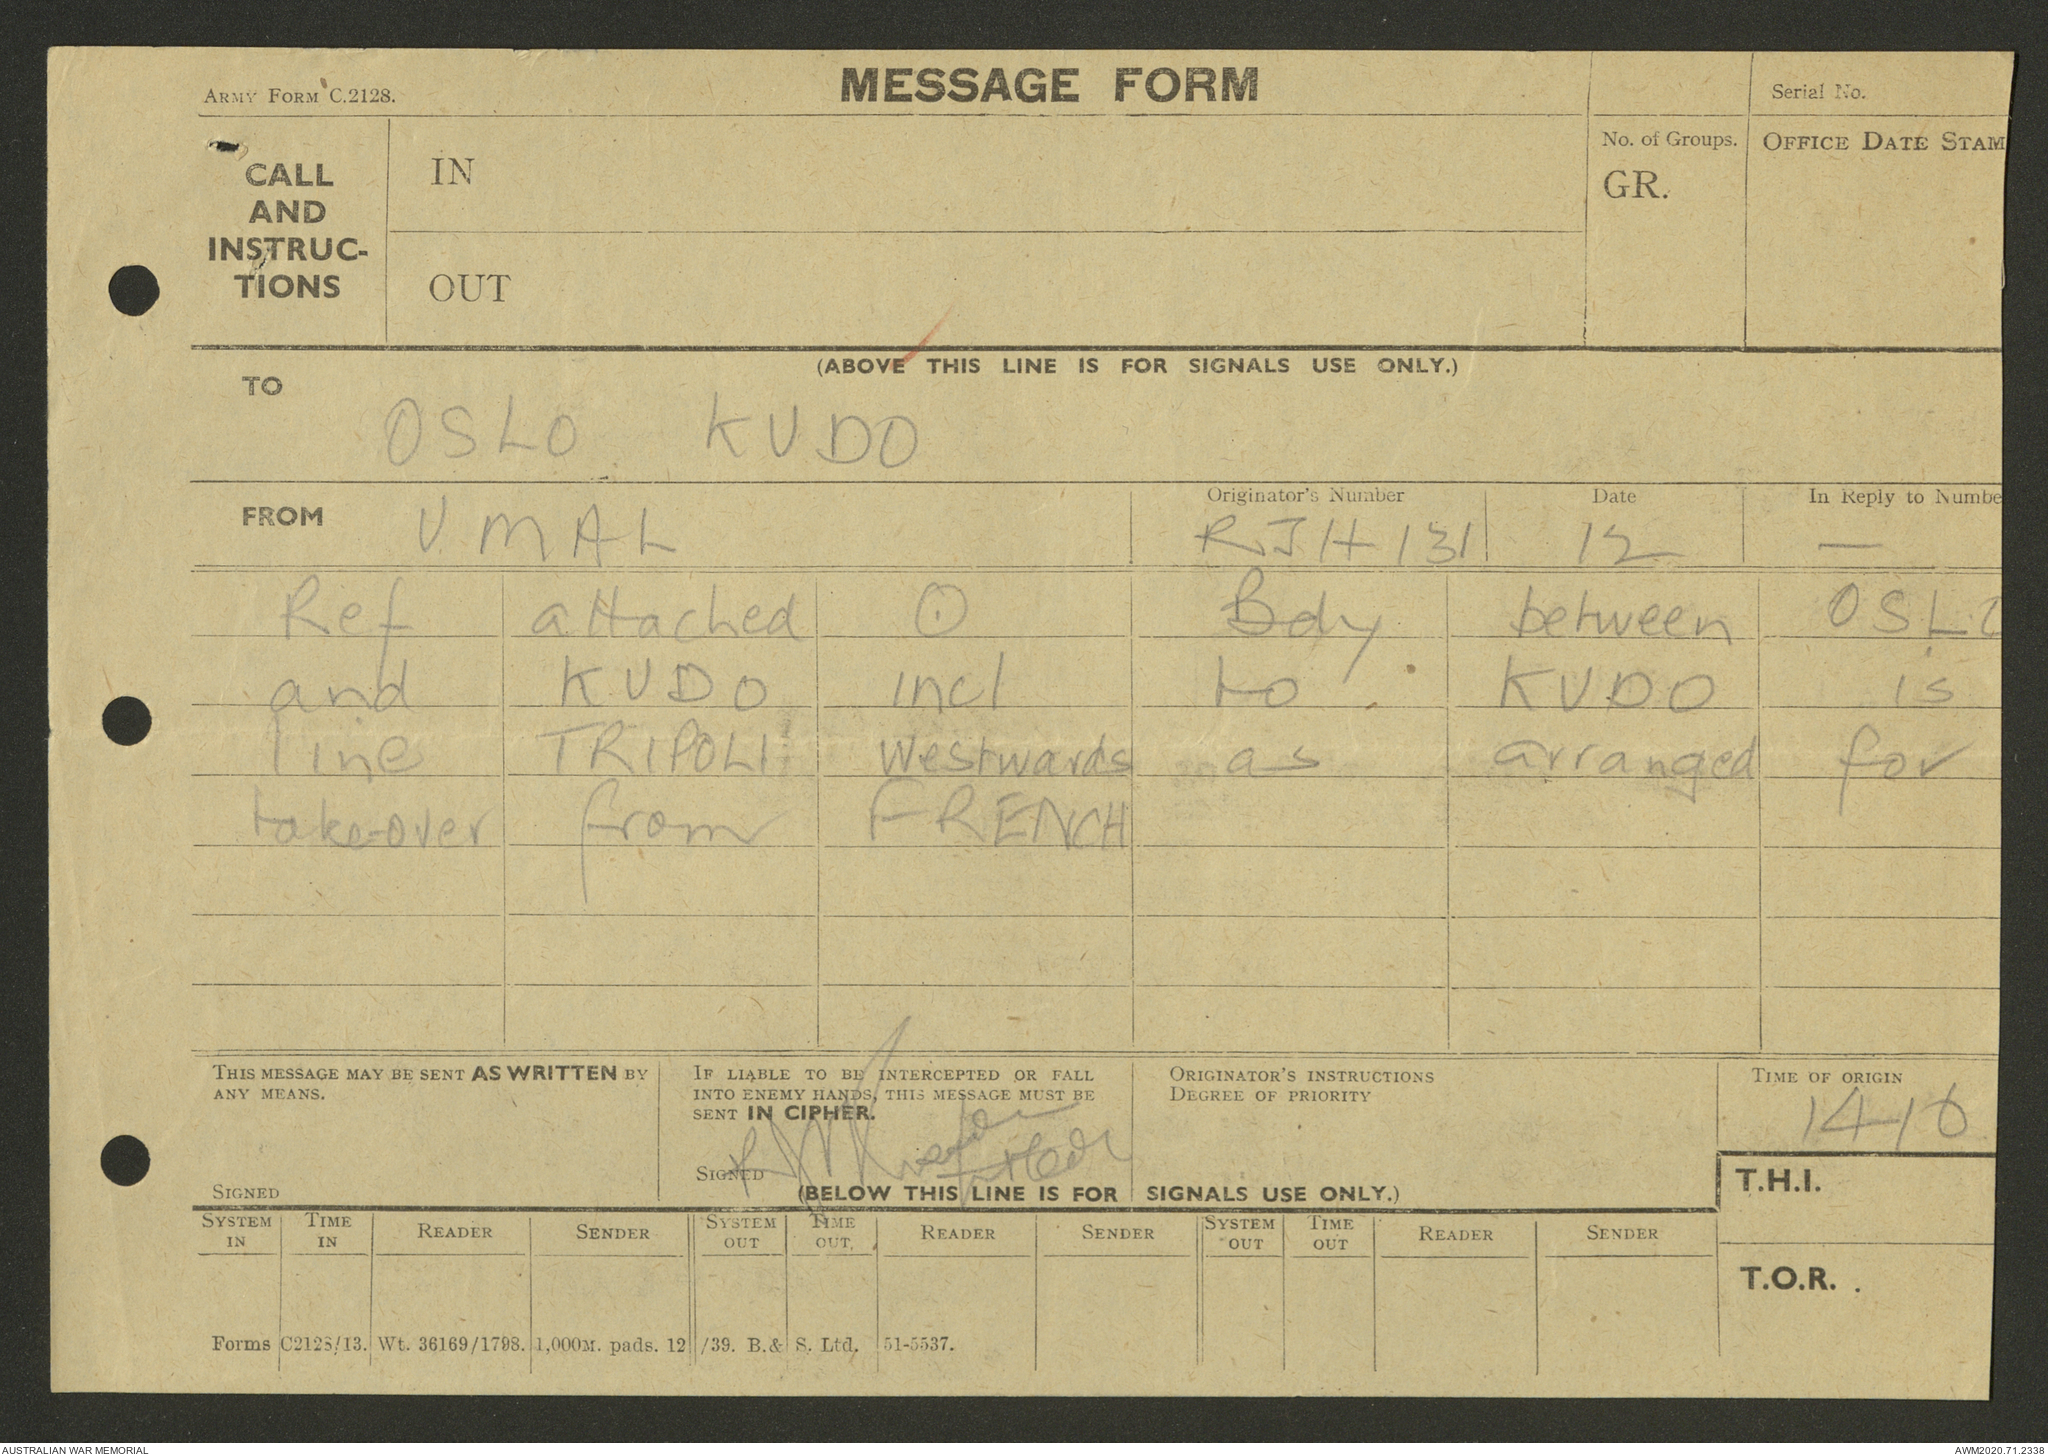 ARMY FORM C.2128.
MESSAGE FORM
Serial No.
CALL
AND
INSTRUC-
TIONS
IN
OUT
No. of Groups.
GR.
OFFICE DATE STAM
(ABOVE THIS LINE IS FOR SIGNALS USE ONLY.)
TO
OSLO KUDO
FROM
VMAL
Originator's Number
RJH 131
Date
12
In Reply to Numbe
—
Ref attached O Bdy between OSLO
and KUDO incl to KUDO is
line TRIPOLI westwards as arranged for
take-over from FRENCH
THIS MESSAGE MAY BE SENT AS WRITTEN BY
ANY MEANS.
SIGNED
IF LIABLE TO BE INTERCEPTED OR FALL
INTO ENEMY HANDS, THIS MESSAGE MUST BE
SENT IN CIPHER.
SIGNED
ORIGINATOR'S INSTRUCTIONS
DEGREE OF PRIORITY
TIME OF ORIGIN
1410
(BELOW THIS LINE IS FOR SIGNALS USE ONLY.)
T.H.I.
T.O.R.
SYSTEM IN TIME IN READER SENDER SYSTEM OUT TIME OUT READER SENDER SYSTEM OUT TIME OUT READER SENDER
Forms C2128/13. Wt. 36169/1798. 1,000M. pads. 12/39. B.& S. Ltd. 51-5537.
AUSTRALIAN WAR MEMORIAL
AWM2020.71.2338